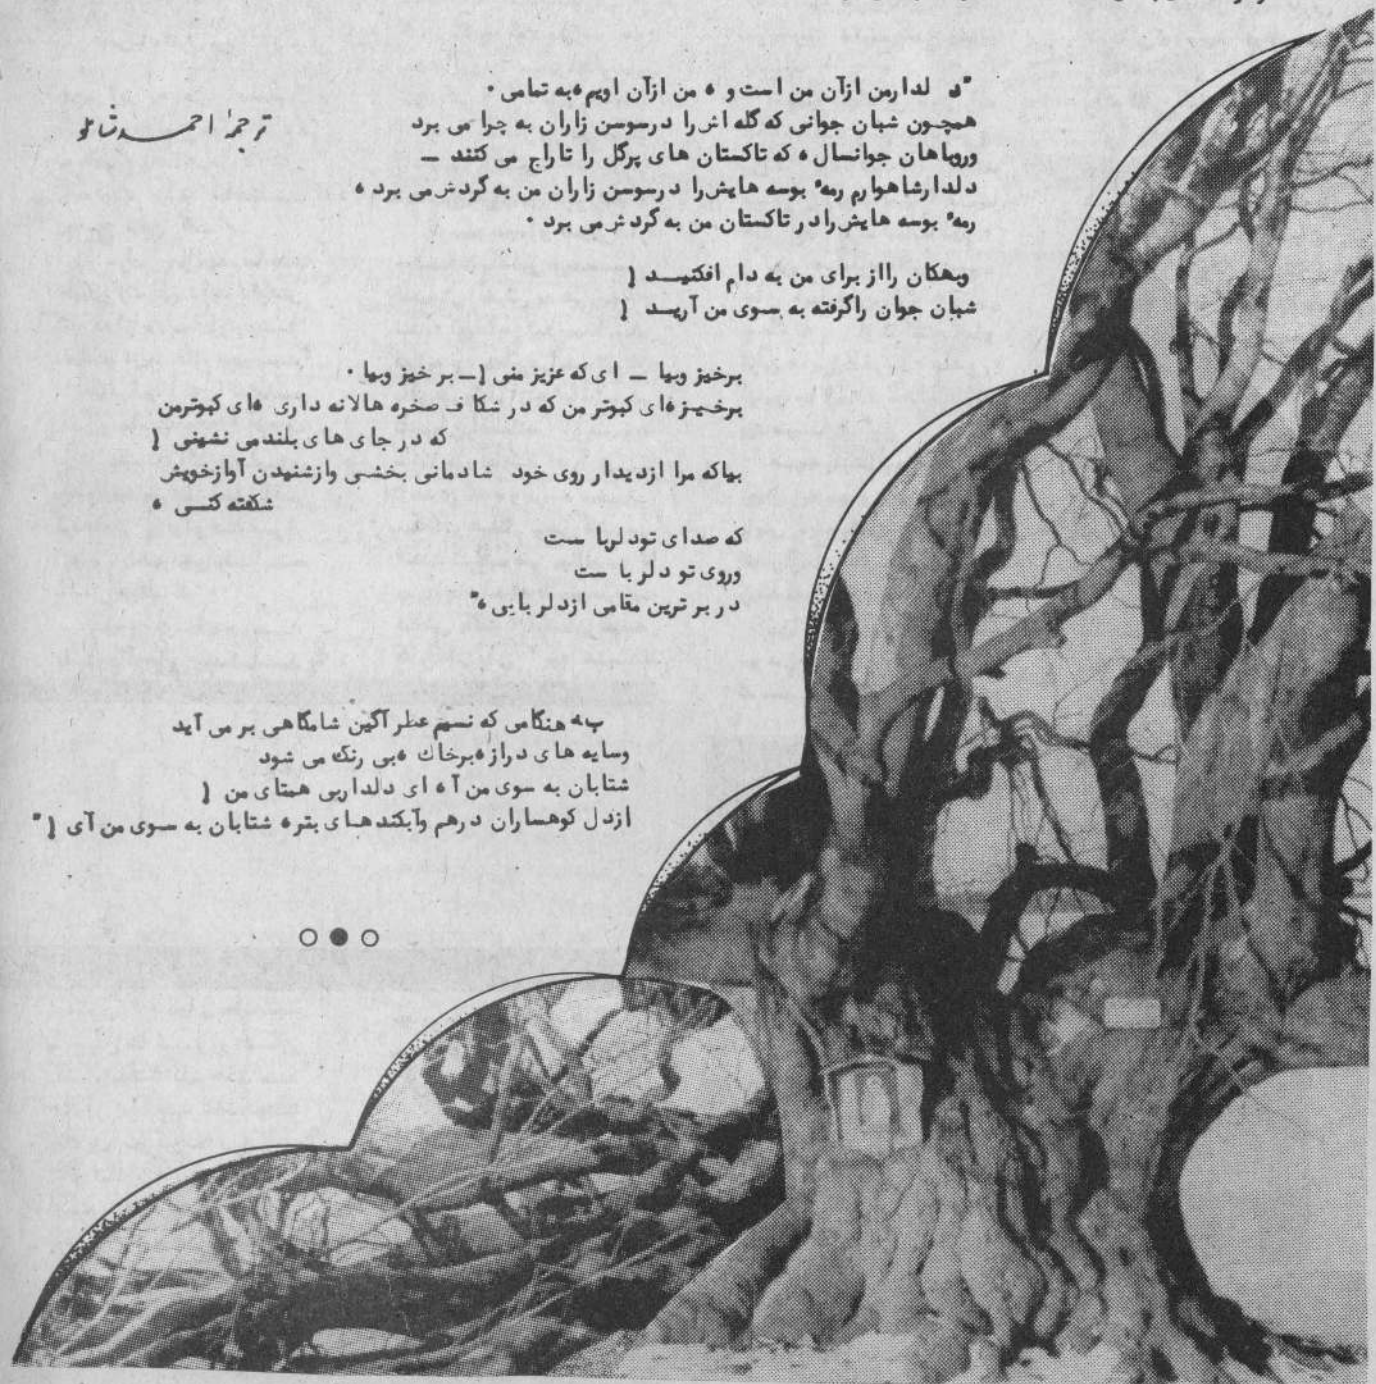 "د لدارمن ازآن من است و ه من ازآن اویم ه به تمامی .
همچون شبان جوانی که گله اش را درسوسن زاران به چرا می برد
وروباهان جوانسال ه که تاکستان های پرگل را تاراج می کنند —
دلدارشاهوارم رمهٔ بوسه هایش را درسوسن زاران من به گردش می برد ه
رمهٔ بوسه هایش رادر تاکستان من به گردش می برد .
ترجمهٔ احمد شاملو
وبهکان رااز برای من به دام افکنید !
شبان جوان راگرفته به سوی من آرید !
برخیز وبیا — ای که عزیز منی ! — بر خیز وبیا .
برخیز ه ای کبوتر من که در شکاف صخره هالانه داری ه ای کبوترمن
که در جای های بلند می نشینی !
بیاکه مرا ازدیدار روی خود شادمانی بخشی وازشنیدن آوازخویش
شکفته کنی ه
که صدای تودلربا ست
وروی تو دلربا ست
در بر ترین مقامی ازدلربایی ه"
"به هنگامی که نسیم عطرآگین شامگاهی بر می آید
وسایه های دراز ه برخاك ه بی رنگ می شود
شتابان به سوی من آ ه ای دلداربی همتای من !
ازدل کوهساران درهم وآبکندهای بتره شتابان به سوی من آی ! "